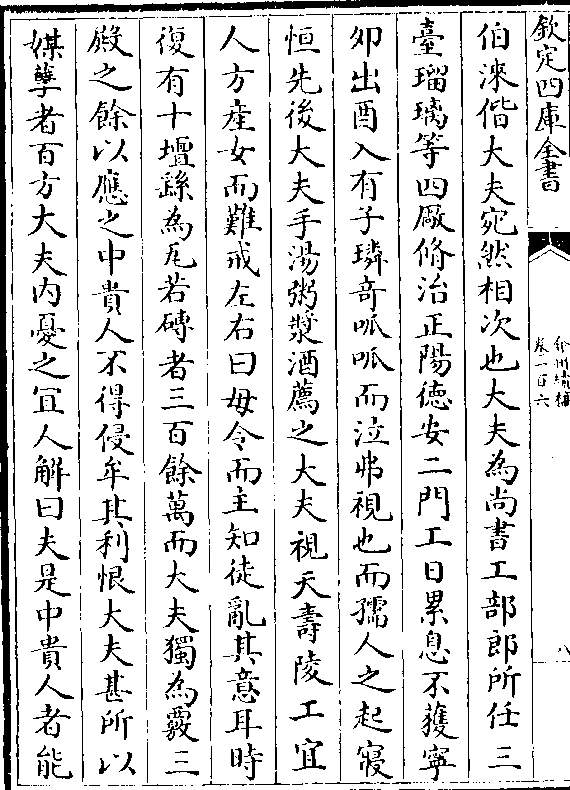 欽定四庫全書
弇州續稿
卷一百六
八
伯淶偕大夫宛然相次也大夫為尚書工部郎所任三
臺瑠璃等四廠脩治正陽徳安二門工日累息不獲寧
夘出酉入有子璘竒呱呱而泣弗視也而孺人之起寢
恒先後大夫手湯粥漿酒薦之大夫視天壽陵工宜
人方産女而難戒左右曰毋令而主知徒亂其意耳時
復有十壇繇為瓦若磚者三百餘萬而大夫獨為覈三
殿之餘以應之中貴人不得侵牟其利恨大夫甚所以
媒孽者百方大夫内憂之宜人解曰夫是中貴人者能